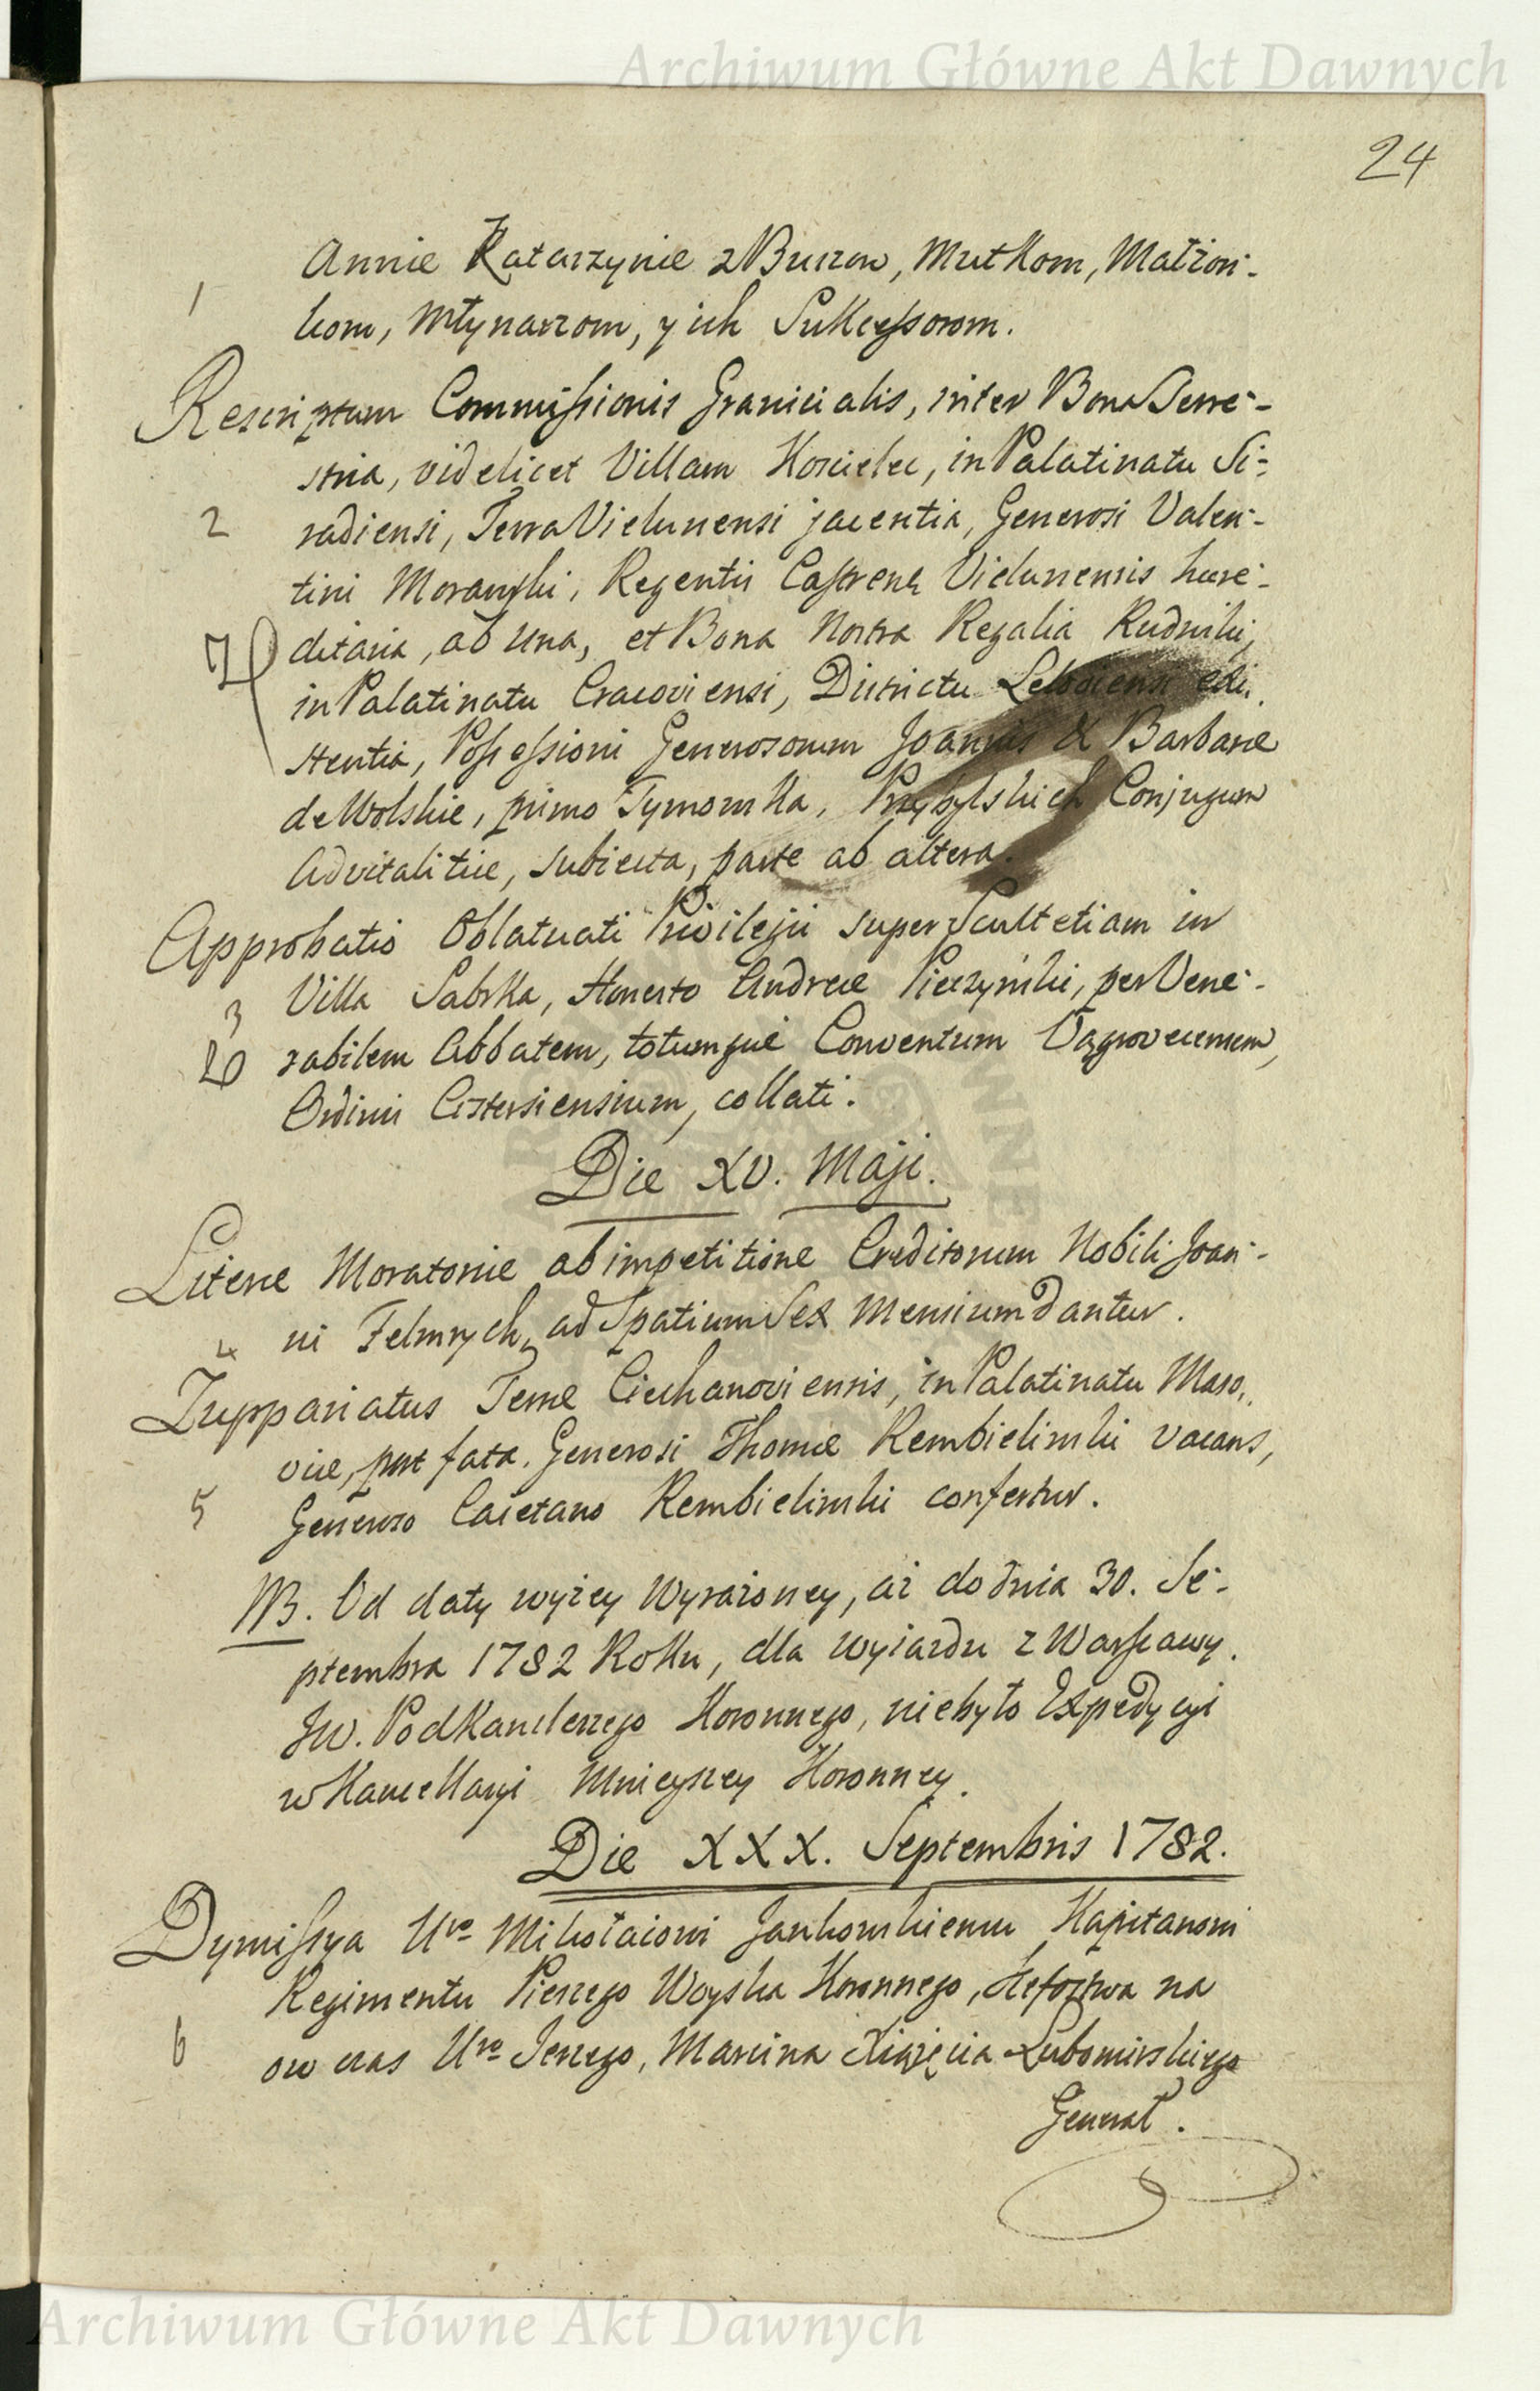 Archiwum Główne Akt Dawnych
24
Annie Katarzynie z Burzow, Mutkom, Małżon-
1 kom, Młynarzom, y ich Sukcessorom.
Rescriptum Commissionis Granicialis, inter Bona Terre-
stria, videlicet Villam Kościelec, in Palatinatu Si-
2 radiensi, Terra Vielunensi jacentia, Generosi Valen-
tini Morawski, Regentis Castrens. Vielunensis hære-
ditaria, ab una, et Bona Nostra Regalia Rudniki,
in Palatinatu Cracoviensi, Districtu Leloviensi exi-
stentia, Possessioni Generosorum Joannis & Barbaræ
de Wolskie, primo Tymowska, Przybylskich Conjugum
Advitalitiæ, subiecta, parte ab altera.
Approbatio Oblatuati Privilegii super Scultetiam in
3 Villa Sabska, Honesto Andreæ Pieczynski, per Vene-
rabilem Abbatem, totumque Conventum Vągrovecensem,
Ordinis Cistersiensium, collati.
Die XV. Maji.
Literæ Moratoriæ ab impetitione Creditorum Nobili Joan-
4 ni Felmrych, ad Spatium Sex Mensium dantur.
Zuppariatus Terræ Ciechanoviensis, in Palatinatu Maso-
viæ, post fata Generosi Thomæ Rembielinski vacans,
5 Generoso Caietano Rembielinski confertur.
NB. Od daty wyżey wyrażoney, aż do dnia 30. Se-
ptembra 1782 Roku, dla wyiazdu z Warszawy
JW. Podkanclerzego Koronnego, niebyło Expedycyi
w Kancellaryi Mnieyszey Koronney.
Die XXX. Septembris 1782.
Dymissya Uro Mikołaiowi Jankowskiemu Kapitanowi
Regimentu Pieszego Woyska Koronnego, Szefostwa na
6 ow czas Uro Jerzego, Marcina Xiążęcia Lubomirskiego
Generał.
Archiwum Główne Akt Dawnych